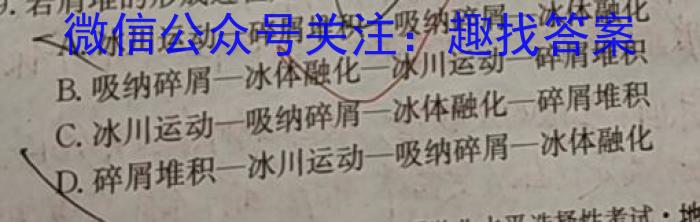 若屑堆的形成过
微信公众号关注：趣找答案
A. 冰川运动—碎屑堆积—吸纳碎屑—冰体融化
B. 吸纳碎屑—冰体融化—冰川运动—碎屑堆积
C. 冰川运动—吸纳碎屑—冰体融化—碎屑堆积
D. 碎屑堆积—冰川运动—吸纳碎屑—冰体融化
平选择性考试·地